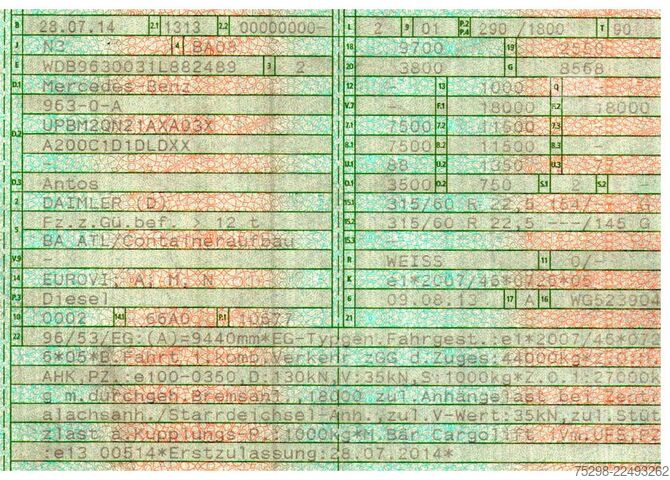 B 28.07.14 2.1 1313 2.2 00000000- L 2 9 01 P.2 P.4 290 /1800 T 90
J N3 4 BA08 18 9700 19 2550
E WDB9630031L882489 3 2 20 3800 G 8568
D.1 Mercedes-Benz 12 - 13 1000 Q
963-0-A V.7 - F.1 18000 F.2 18000
D.2 UPBM2QN21AXA03X 7.1 7500 7.2 11500 7.3
A200C1D1DLDXX 8.1 7500 8.2 11500 8.3 -
- U.1 88 U.2 1350 U.3 77
D.3 Antos O.1 3500 O.2 750 S.1 2 S.2 -
2 DAIMLER (D) 15.1 315/60 R 22,5 G
5 Fz.z.Gü.bef. > 12 t 15.2 315/60 R 22,5 ---/145 G
BA ATL/Containeraufbau 15.3 -
V.9 - R WEISS 11 0/-
14 EUROVI; A, M, N K e1*2007/46*0726*05
P.3 Diesel 6 09.08.13 17 A 16 WG523904
10 0002 14.1 66A0 P.1 10677 21
22 96/53/EG:(A)=9440mm*EG-Typgen.Fahrgest.:e1*2007/46*072
6*05*B.Fahrt i.komb.Verkehr zGG d.Zuges:44000kg*Z.O.1:m.
AHK,PZ.:e100-0350,D:130kN,V:35kN,S:1000kg*Z.O.1:27000k
g m.durchgeh.Bremsanl.,18000 zul.Anhängelast bei Zentr
alachsanh./Starrdeichsel-Anh.,zul.V-Wert:35kN,zul.Stüt
zlast a.Kupplungs-P.:1000kg*M.Bär Cargolift iVm.UFS,PZ
:e13 00514*Erstzulassung:28.07.2014*
75298-22493262